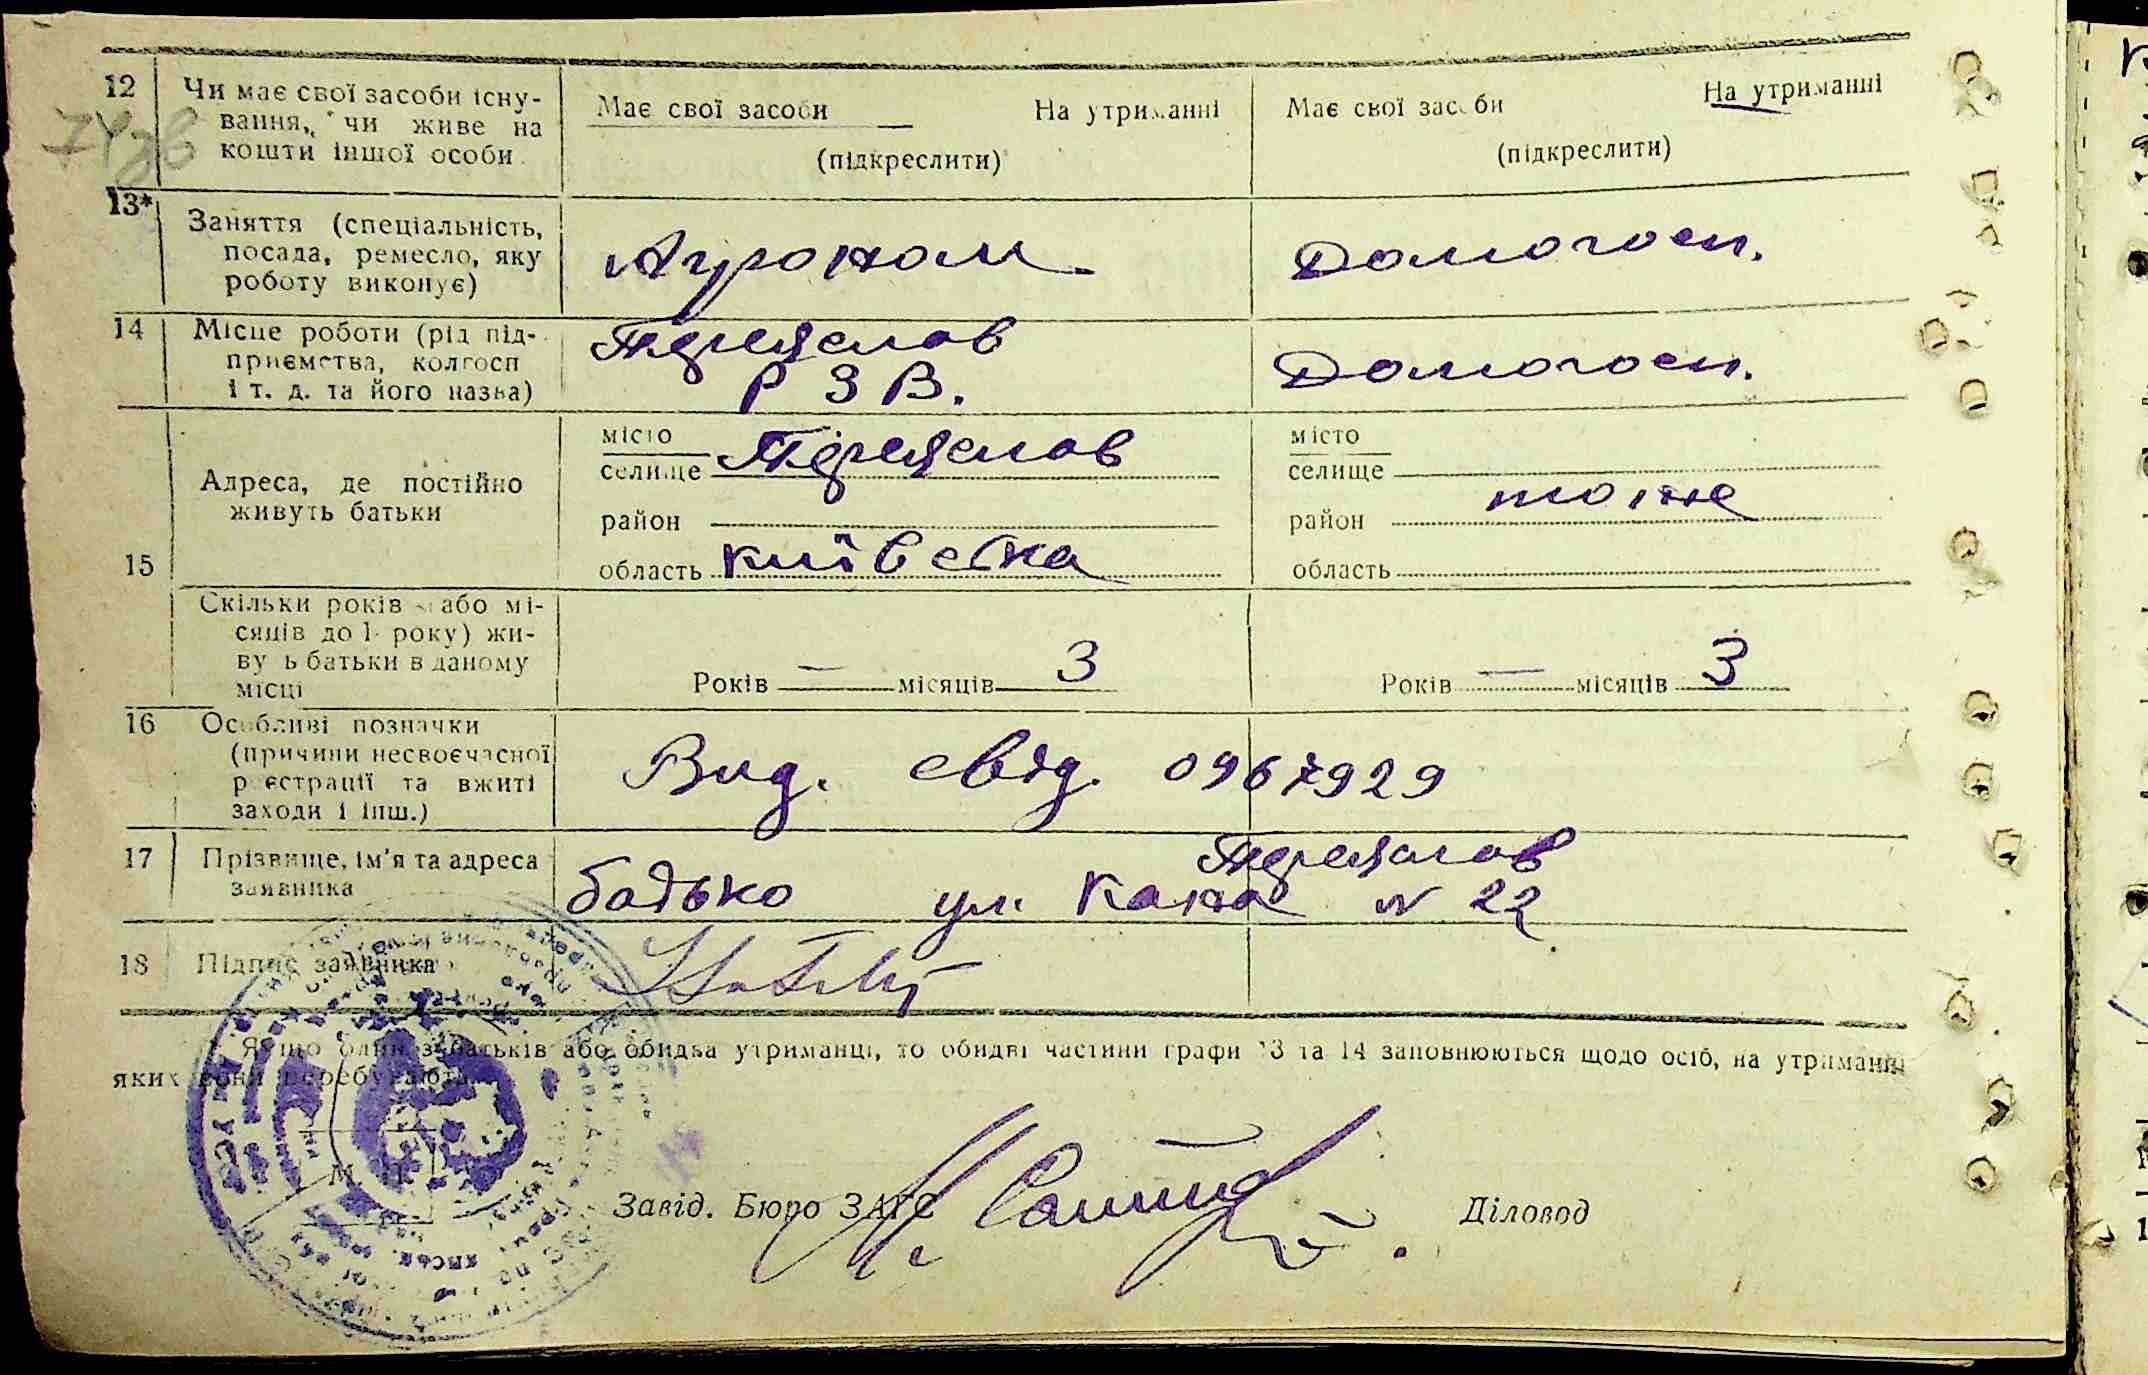 12 Чи має свої засоби існу-
вання, чи живе на
кошти іншої особи
Має свої засоби На утриманні
(підкреслити)
Має свої засоби На утриманні
(підкреслити)
13* Заняття (спеціальність,
посада, ремесло, яку
роботу виконує)
Агроном
Домогосп.
14 Місце роботи (рід під-
приємства, колгосп
і т. д. та його назва)
Переяслав
Р З В.
Домогосп.
15 Адреса, де постійно
живуть батьки
місто
селище Переяслав
район
область Київська
місто
селище
район тоже
область
Скільки років або мі-
сяців до 1 року) жи-
вуть батьки в даному
місці
Років — місяців 3
Років — місяців 3
16 Особливі позначки
(причини несвоєчасної
реєстрації та вжиті
заходи і інш.)
Вид. свід. 0967929
17 Прізвище, ім'я та адреса
заявника
Переяслав
батько ул. Кана N 22
18 Підпис заявника
Якщо один з батьків або обидва утриманці, то обидві частини графи 13 та 14 заповнюються щодо осіб, на утриманні
яких вони перебувають.
М. П.
Завід. Бюро ЗАГС Діловод